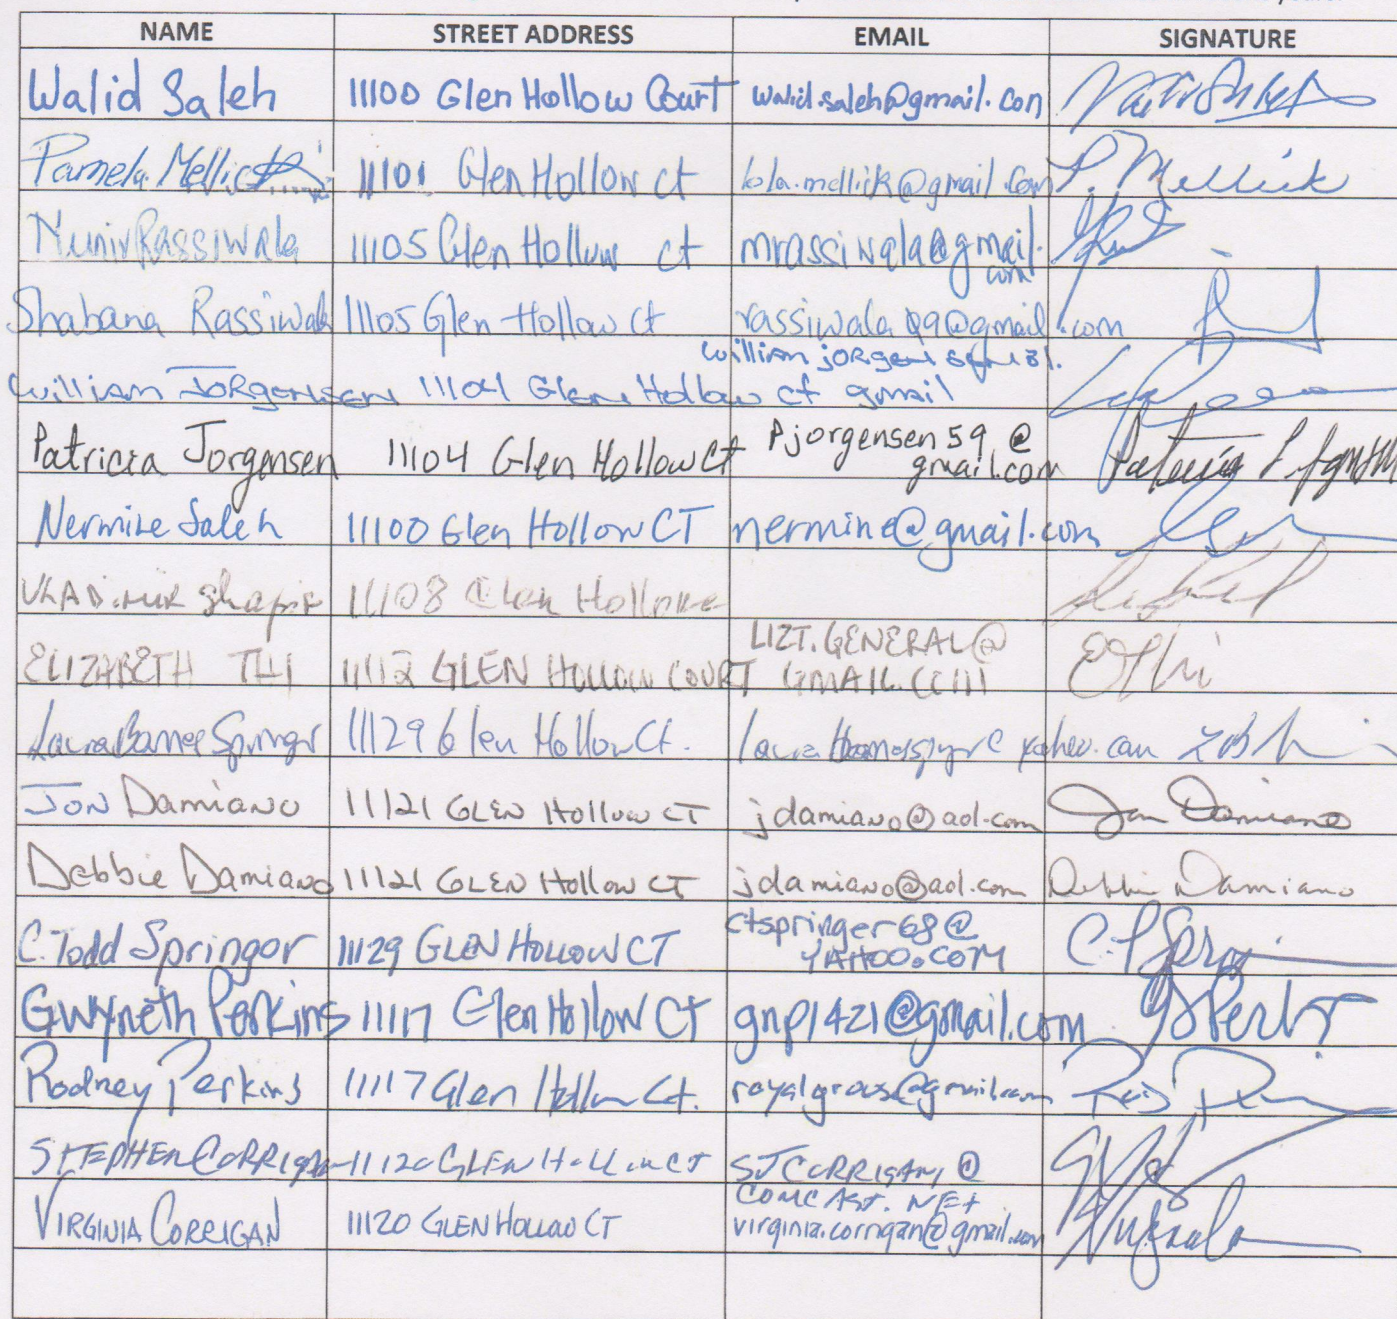 NAME STREET ADDRESS EMAIL SIGNATURE
Walid Saleh 11100 Glen Hollow Court walid.saleh@gmail.com
Pamela Mellick 11101 Glen Hollow ct P. Mellick
Munir Rassiwala 11105 Glen Hollow ct mrassiwala@gmail.
com
Shabana Rassiwala 11105 Glen Hollow ct rassiwala99@gmail.com
William Jorgensen 11104 Glen Hollow ct gmail
Patricia Jorgensen 11104 Glen Hollow Ct Pjorgensen59@
gmail.com
Nermine Saleh 11100 Glen Hollow CT nermine@gmail.com
11108 Glen Hollow
LIZT.GENERAL@
ELIZABETH THI 11112 GLEN HOLLOW COURT GMAIL.COM
Laura Barnes Springer 11129 Glen Hollow Ct.
JON Damiano 11121 GLEN Hollow CT jdamiano@aol.com Jon Damiano
Debbie Damiano 11121 GLEN Hollow CT jdamiano@aol.com Debbie Damiano
ctspringer68@
C. Todd Springer 11129 GLEN HOLLOW CT YAHOO.COM
Gwyneth Perkins 11117 Glen Hollow CT gnp1421@gmail.com
Rodney Perkins 11117 Glen Hollow Ct.
STEPHEN CORRIGAN 11120 GLEN HOLLOW CT
COMCAST.NET
VIRGINIA CORRIGAN 11120 GLEN HOLLOW CT virginia.corrigan@gmail.com